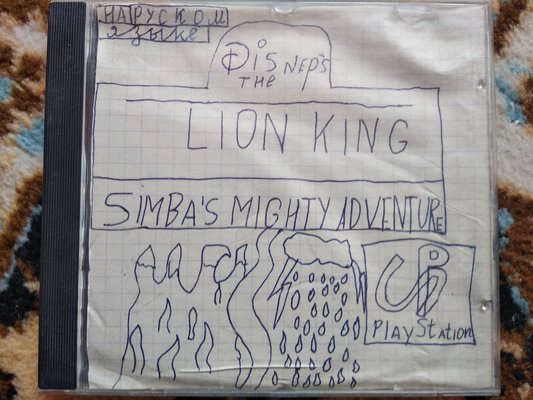 НА РУСКОМ
языке
DISNEP'S
THE
LION KING
SIMBA'S MIGHTY ADVENTURE
PlayStation